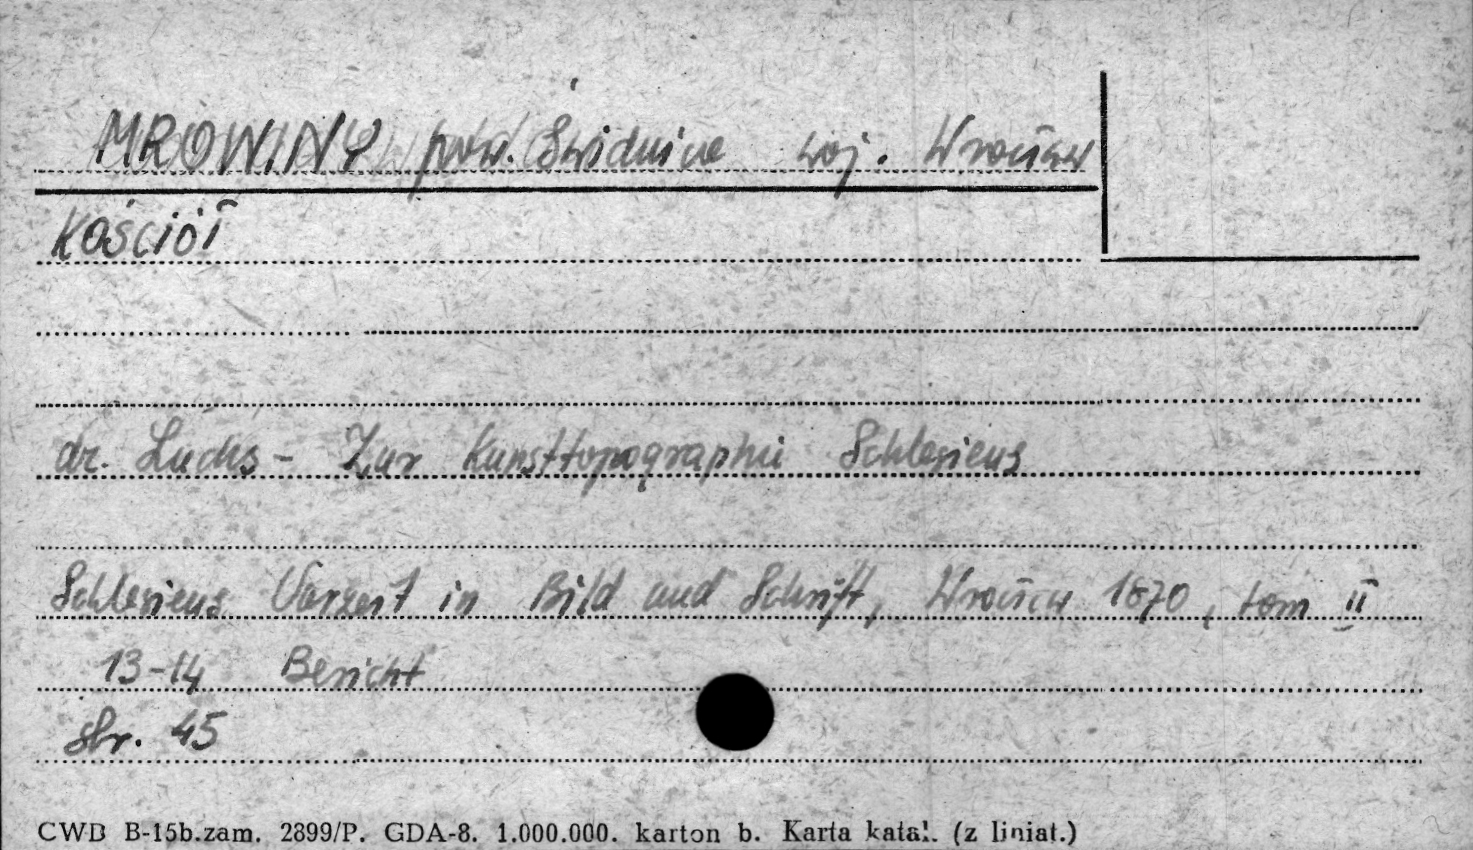 MROWINY pow. Świdnica woj. Wrocław
Kościół
dr. Luchs - Zur Kunsttopographie Schlesiens
Schlesiens Vorzeit in Bild und Schrift, Wrocław 1870, tom II
13-14 Bericht
str. 45
CWD B-15b.zam. 2899/P. GDA-8. 1.000.000. karton b. Karta katal. (z liniat.)